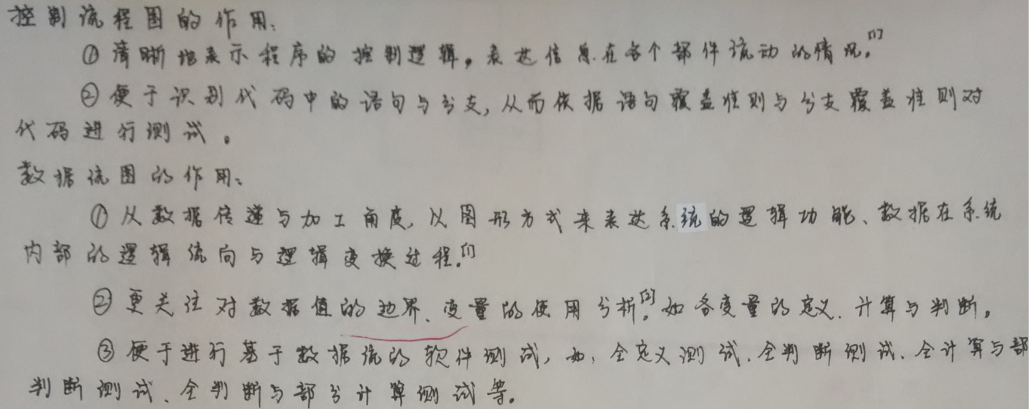 控制流程图的作用:
①清晰地表示程序的控制逻辑。表达信息在各个部件流动的情况。[1]
②便于识别代码中的语句与分支,从而依据语句覆盖准则与分支覆盖准则对
代码进行测试。
数据流图的作用:
①从数据传递与加工角度,以图形方式来表达系统的逻辑功能、数据在系统
内部的逻辑流向与逻辑变换过程。[1]
②更关注对数据值的边界、变量的使用分析。[2]如各变量的定义、计算与判断。
③便于进行基于数据流的软件测试,如:全定义测试、全判断测试、全计算与部
判断测试、全判断与部分计算测试等。